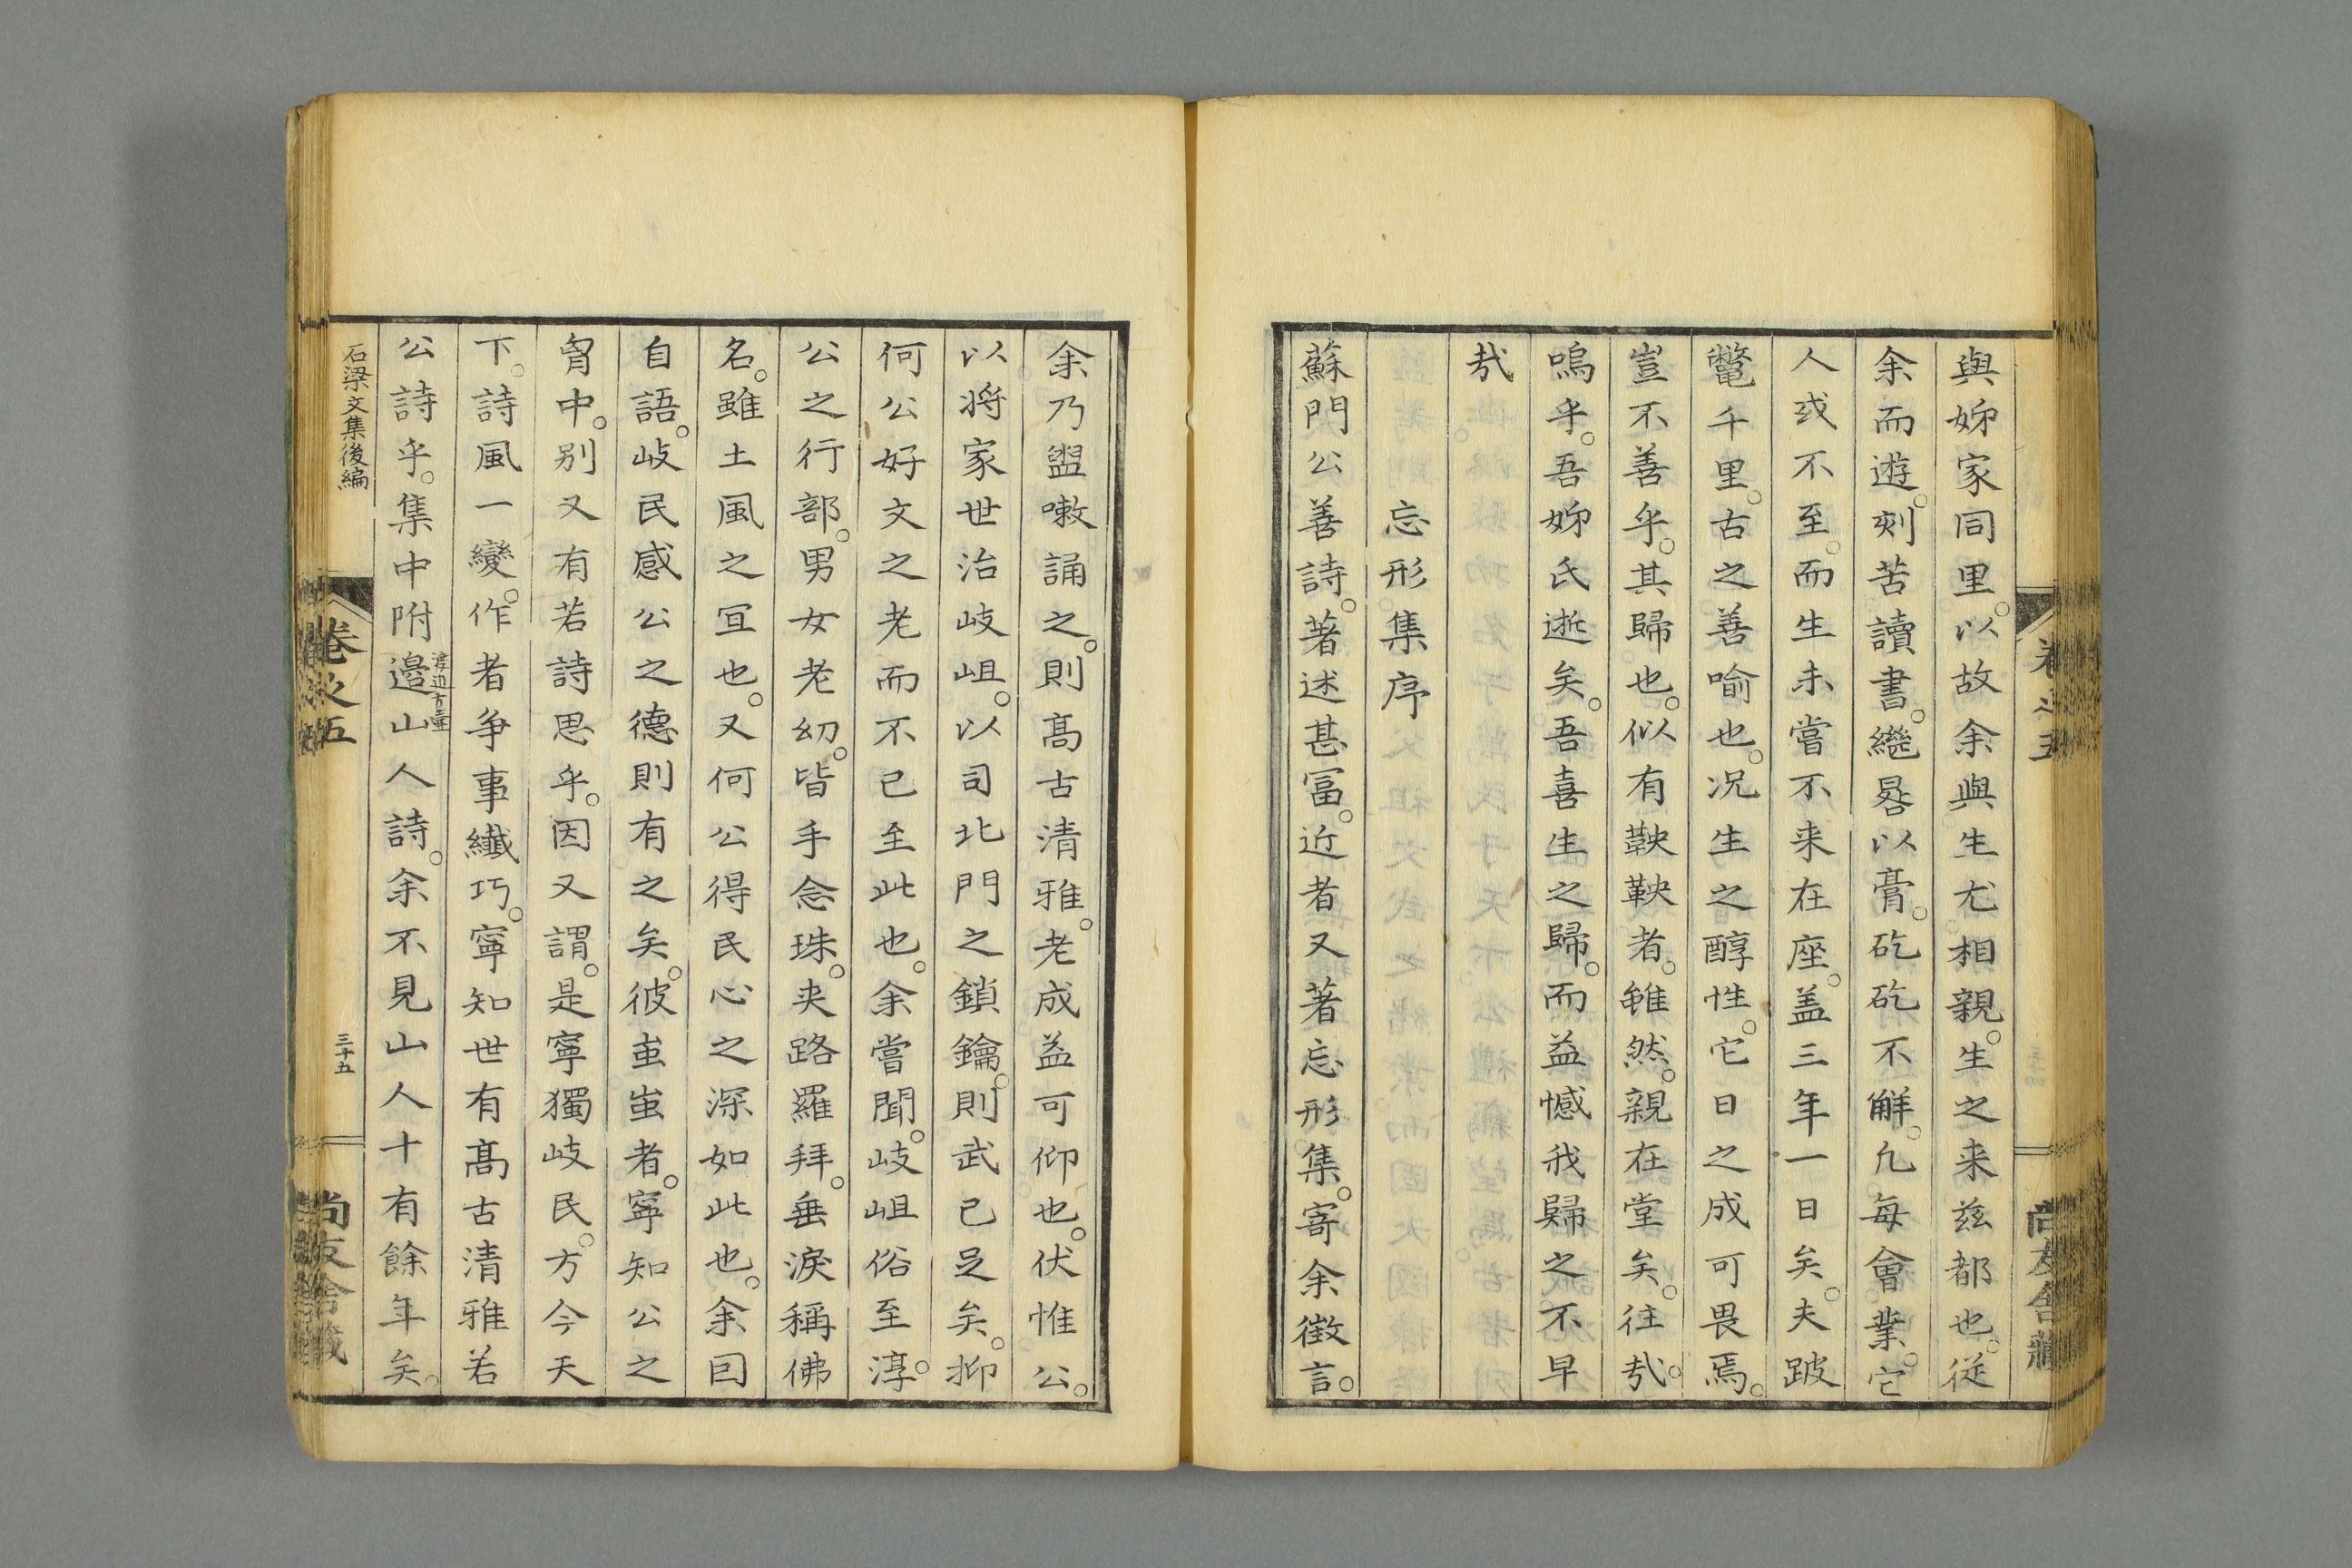 與姊家同里。以故余與生尤相親。生之来玆都也。従
余而遊。刻苦讀書。繼晷以膏。矻矻不觧。凢每會業。它
人或不至。而生未嘗不来在座。盖三年一日矣。夫跛
鼈千里。古之善喻也。况生之醇性。它日之成可畏焉。
豈不善乎。其歸也。似有鞅鞅者。雖然。親在堂矣。往㢤。
嗚乎。吾姊氏逝矣。吾喜生之歸。而益憾我歸之不早
㢤
忘形集序
蘇門公善詩。著述甚冨。近者又著忘形集。寄余徴言。
余乃盥嗽誦之。則髙古清雅。老成益可仰也。伏惟公。
以将家世治岐岨。以司北門之鎖鑰。則武已足矣。抑
何公好文之老而不已至此也。余嘗聞。岐岨俗至淳。
公之行部。男女老幼。皆手念珠。夾路羅拜。垂淚稱佛
名。雖土風之宜也。又何公得民心之深如此也。余囙
自語。岐民感公之德則有之矣。彼蚩蚩者。寧知公之
胷中。别又有若詩思乎。因又謂。是寧獨岐民。方今天
下。詩風一變。作者争事纎巧。寧知世有髙古清雅若
公詩乎。集中附邉山人詩。余不見山人十有餘年矣。
渡辺方壷
石梁文集後編
卷之五
三十五
尚友舎藏